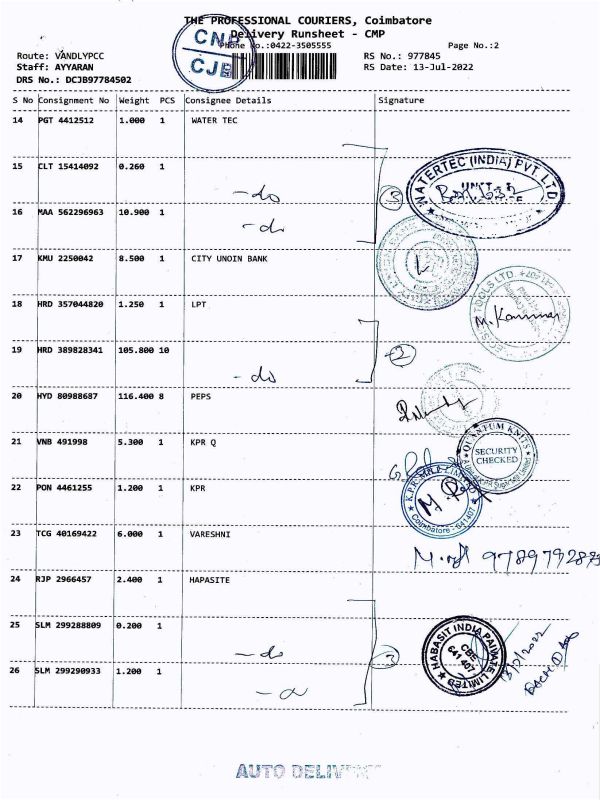 THE PROFESSIONAL COURIERS, Coimbatore
Delivery Runsheet - CMP
CNP
CJB
Phone No.:0422-3505555
Page No.:2
Route: VANDLYPCC
RS No.: 977845
Staff: AYYARAN
RS Date: 13-Jul-2022
DRS No.: DCJB97784502
S No Consignment No Weight PCS Consignee Details Signature
14 PGT 4412512 1.000 1 WATER TEC
15 CLT 15414092 0.260 1
-do
3
WATERTEC (INDIA) PVT. LTD.
16 MAA 562296963 10.900 1
-do
17 KMU 2250042 8.500 1 CITY UNOIN BANK
18 HRD 357044820 1.250 1 LPT
TOOLS LTD.
M. Kannan
19 HRD 389828341 105.800 10
-do
2
20 HYD 80988687 116.400 8 PEPS
21 VNB 491998 5.300 1 KPR Q
QUANTUM KNITS
SECURITY
CHECKED
22 PON 4461255 1.200 1 KPR
K.P.R. MILL LIMITED
Coimbatore - 641407
23 TCG 40169422 6.000 1 VARESHNI
24 RJP 2966457 2.400 1 HAPASITE
25 SLM 299288809 0.200 1
-do
3
HABASIT INDIA PRIVATE LIMITED
CBE
641 407
13/7/2022
26 SLM 299290933 1.200 1
AUTO